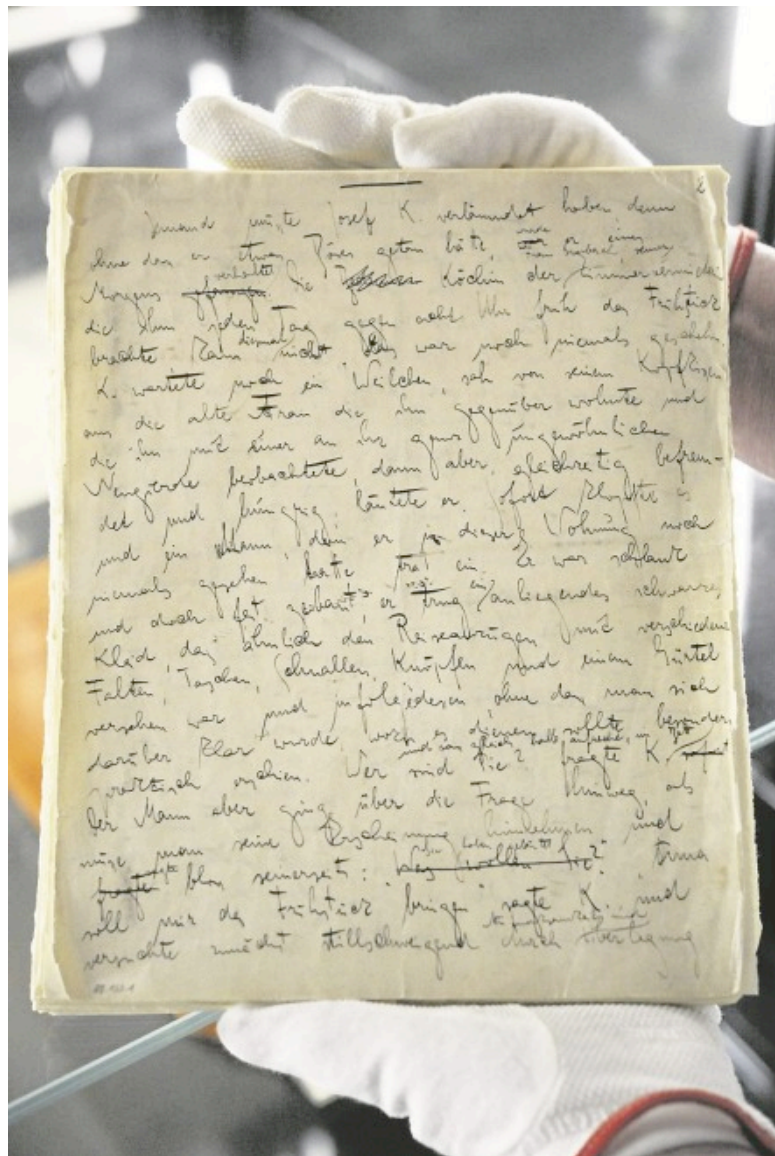 2
Jemand musste Josef K. verläumdet haben, denn
ohne dass er etwas Böses getan hätte, wurde er eines
Morgens gefangen verhaftet. Die Köchin der Zimmervermieterin
die ihm jeden Tag gegen acht Uhr früh das Frühstück
brachte kam diesmal nicht. Das war noch niemals geschehn.
K. wartete noch ein Weilchen, sah von seinem Kopfkissen
aus die alte Frau die ihm gegenüber wohnte und
die ihn mit einer an ihr ganz ungewöhnlichen
Neugierde beobachtete, dann aber, gleichzeitig befrem-
det und hungrig, läutete er. Sofort klopfte es
und ein Mann, den er in dieser Wohnung noch
niemals gesehen hatte trat ein. Er war schlank
und doch fest gebaut, er trug ein anliegendes schwarzes
Kleid, das ähnlich den Reiseanzügen mit verschiedenen
Falten, Taschen, Schnallen, Knöpfen und einem Gürtel
versehen war und infolgedessen, ohne dass man sich
darüber klar wurde, wozu es dienen sollte, besonders
praktisch erschien. Wer sind Sie? fragte K. und sass gleich halb aufrecht im Bett
Der Mann aber ging über die Frage hinweg, als
müsse man seine Erscheinung hinnehmen und
fragte sagte bloss seinerseits: Was wollen Sie? Sie haben geläutet? Anna
soll mir das Frühstück bringen sagte K. und
versuchte zunächst stillschweigend durch Aufmerksamkeit und Überlegung